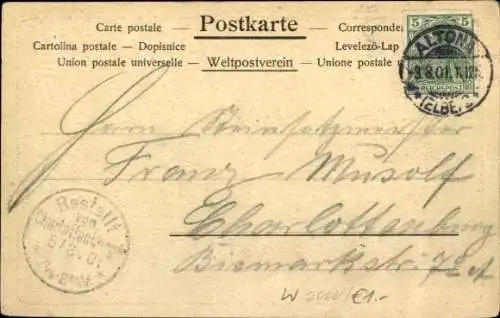 Carte postale — Postkarte — Corresponden
Cartolina postale — Dopisnice
Levelezö-Lap
Union postale universelle — Weltpostverein — Unione postale
5 5
REICHSPOST
ALTONA
3.8.01.
(ELBE)
Herrn Steinsetzmeister
Franz Musolf
Charlottenburg
Bismarckstr. 72
Bestellt
von
Charlottenburg
5/8.01
W €1.-